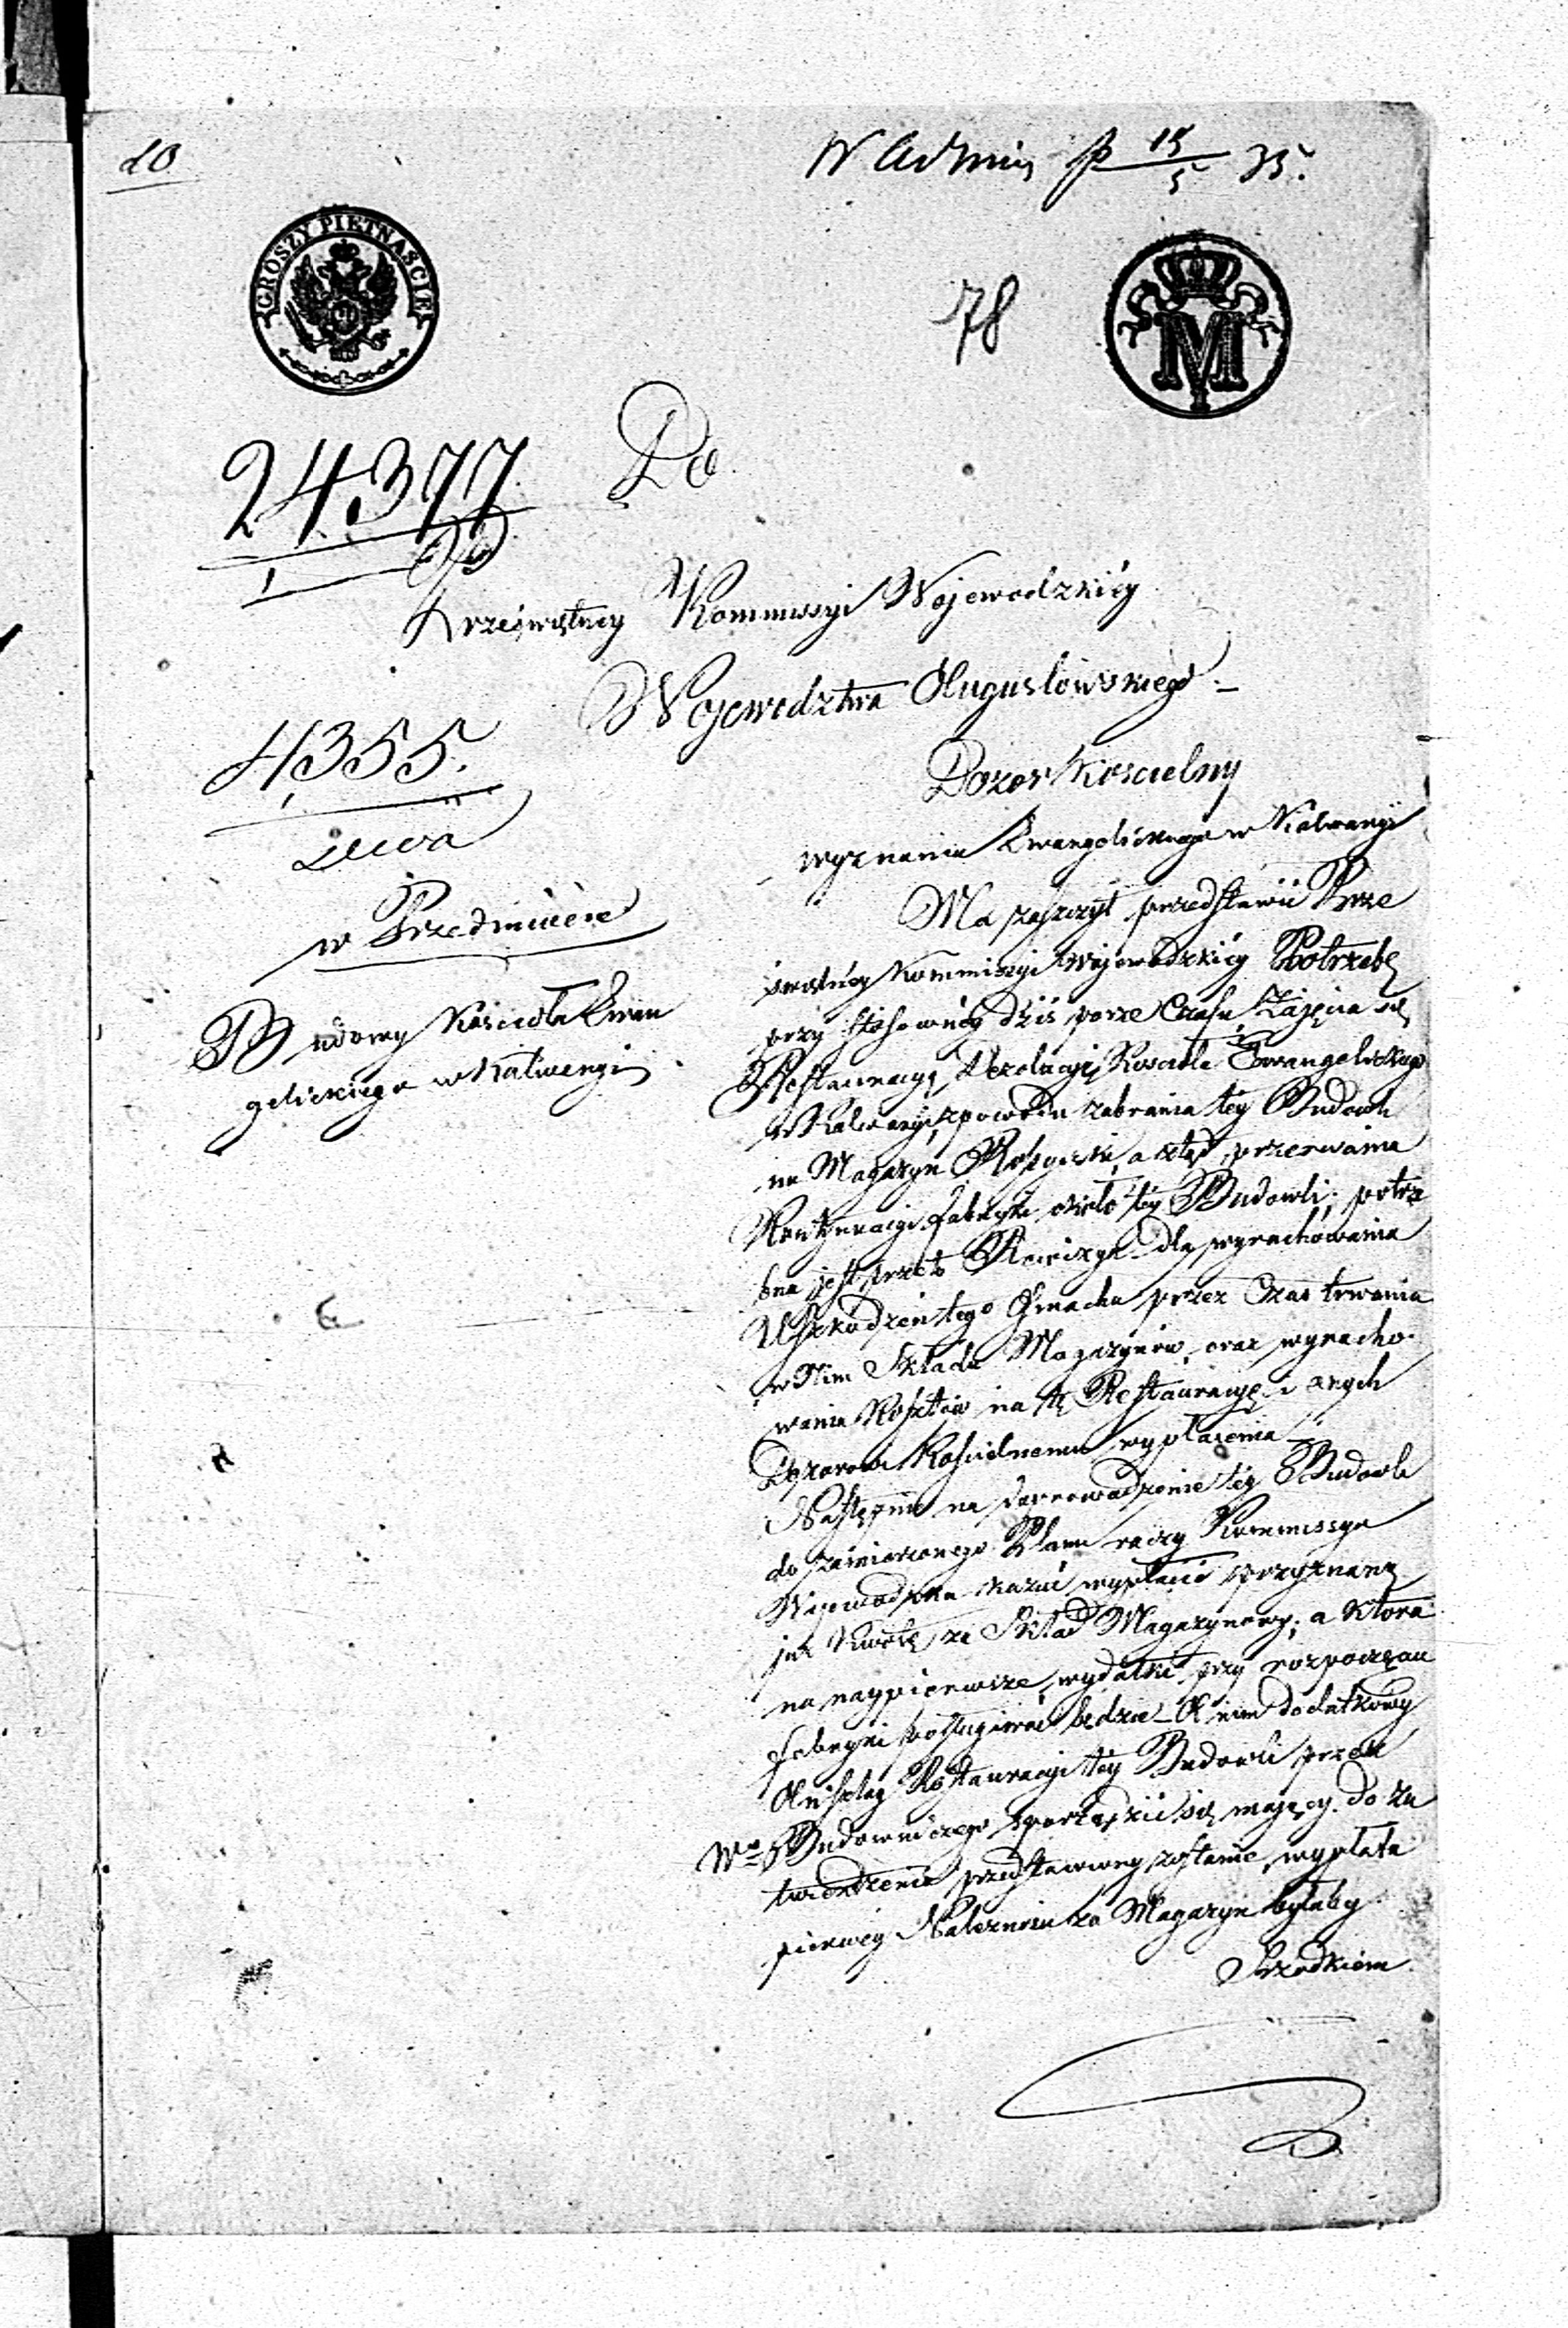 20
W Admin p 15/5 35.
GROSZY PIETNAŚCIE
78
M
24377
Do
Przeświętney Kommissyi Wojewodzkiey
Wojewodztwa Augustowskiego
4355.
Dozor Koscielny
wyznania Ewangelickiego w Kalwaryi
w Przedmiocie
Budowy Kościoła Ewan
gelickiego w Kalwaryi
Ma zaszczyt przedstawić Prze
świętney Kommissyi Wojewodzkiey Potrzebę
przy stosowney dziś porze Czasu, Zajęcia się
Restauracyą Dezolacyi Kościoła Ewangelickiego
w Kalwaryi, z powodu zabrania tey Budowli
na Magazyn Rossyiski, a ztąd przerwania
Kontynuacyi fabryki około tey Budowli; potrze
bna jest przeto Rewizya dla wyrachowania
Uszkodzeń tego Gmachu przez Czas trwania
w Nim Składu Magazynów, oraz wyracho-
wania Kosztów na tę Restauracyę i onych
Dozorowi Kościelnemu wypłacenia
Następnie na doprowadzenie tey Budowli
do zamierzonego Planu raczy Kommissya
Wojewodzka kazać wypłacić przyznaną
już Kwotę za Skład Magazynowy; a która
na naypierwsze wydatki przy rozpoczęciu
fabryki posługiwać będzie – Nim dodatkowy
Anszlag Restauracyi tey Budowli przez
Wo Budowniczego sporządzić się maiący do za
twierdzenia przedstawiony zostanie, wypłata
pierwey Należności za Magazyn byłaby
Srzodkiem